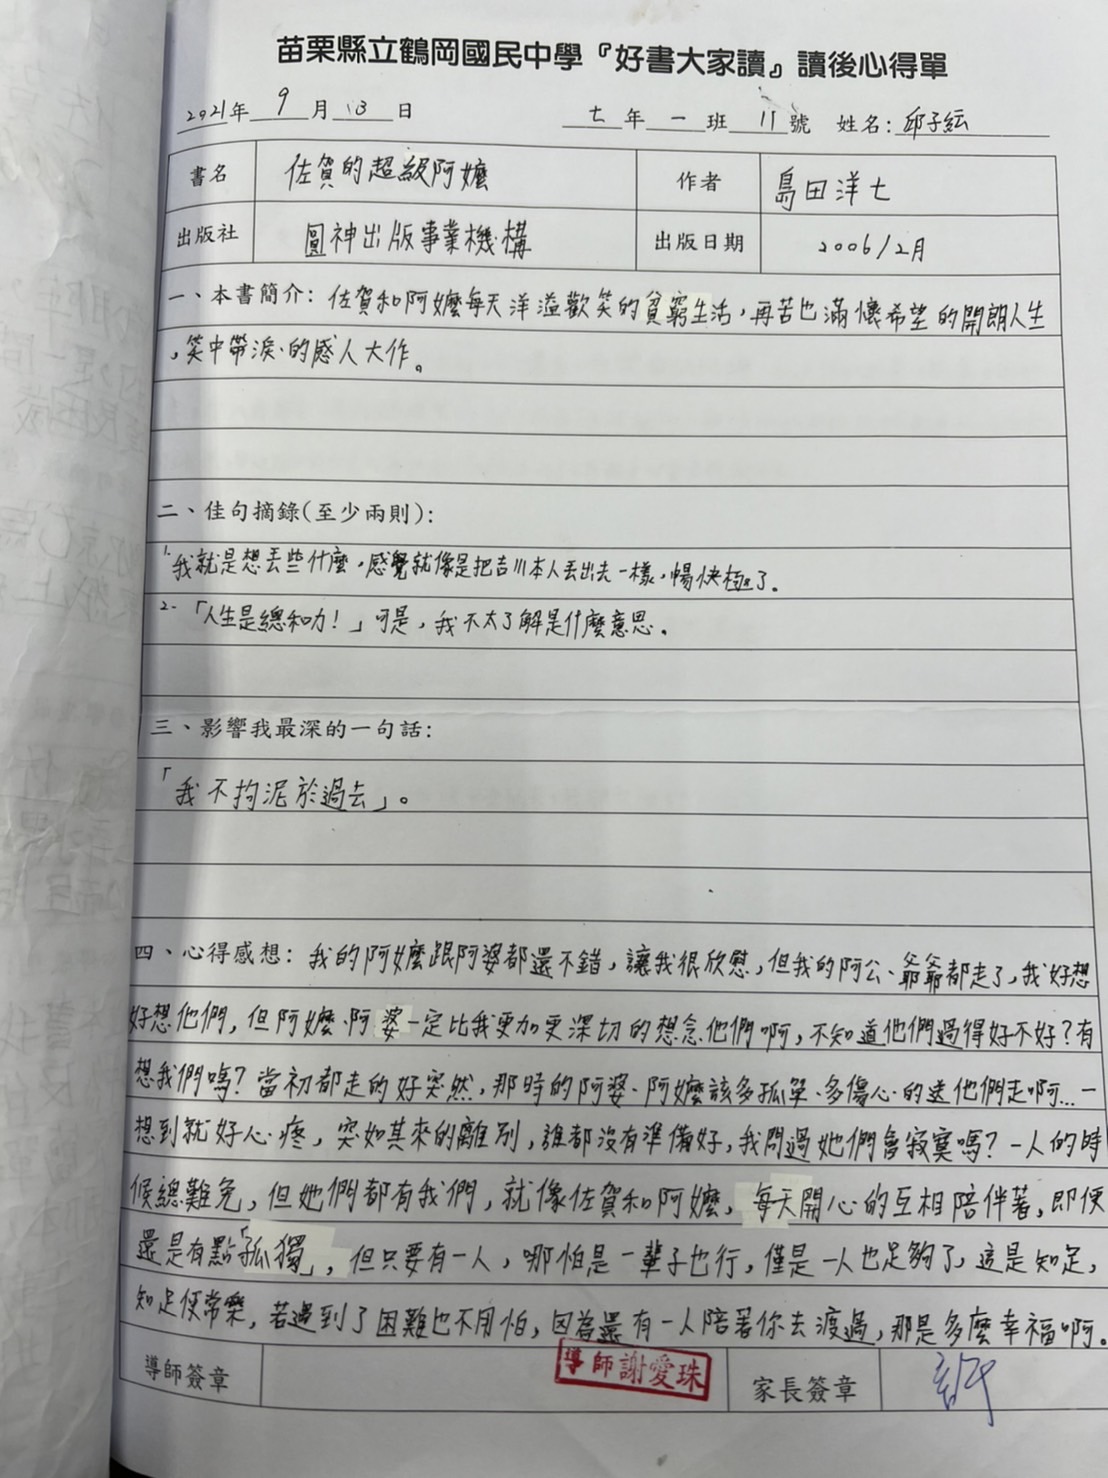 苗栗縣立鶴岡國民中學『好書大家讀』讀後心得單
2021年 9 月 13 日 七 年 一 班 11 號 姓名: 邱子紜
書名 佐賀的超級阿嬤 作者 島田洋七
出版社 圓神出版事業機構 出版日期 2006/2月
一、本書簡介: 佐賀和阿嬤每天洋溢歡笑的貧窮生活,再苦也滿懷希望的開朗人生
,笑中帶淚的感人大作。
二、佳句摘錄(至少兩則):
1. 我就是想丟些什麼,感覺就像是把吉川本人丟出去一樣,暢快極了。
2. 「人生是總和力!」可是,我不太了解是什麼意思。
三、影響我最深的一句話:
「我不拘泥於過去」。
四、心得感想: 我的阿嬤跟阿婆都還不錯,讓我很欣慰,但我的阿公、爺爺都走了,我好想
好想他們,但阿嬤、阿婆一定比我更加更深切的想念他們啊,不知道他們過得好不好?有
想我們嗎?當初都走的好突然,那時的阿婆、阿嬤該多孤單、多傷心的送他們走啊...一
想到就好心疼,突如其來的離別,誰都沒有準備好,我問過她們會寂寞嗎?一人的時
候總難免,但她們都有我們,就像佐賀和阿嬤,每天開心的互相陪伴著,即便
還是有點「孤獨」,但只要有一人,哪怕是一輩子也行,僅是一人也足夠了,這是知足,
知足便常樂,若遇到了困難也不用怕,因為還有一人陪著你去渡過,那是多麼幸福啊。
導師簽章 導師謝愛珠 家長簽章